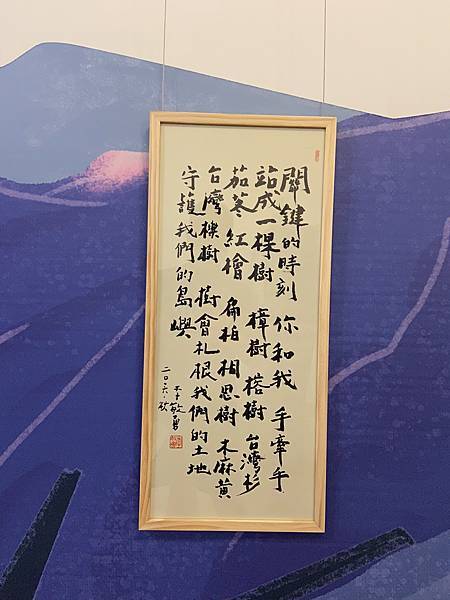 關鍵的時刻 你和我 手牽手
站成一棵樹 樟樹 榕樹 台灣杉
茄苳 紅檜 扁柏 相思樹 木麻黃
台灣欒樹 樹會札根我們的土地
守護我們的島嶼
李敏勇